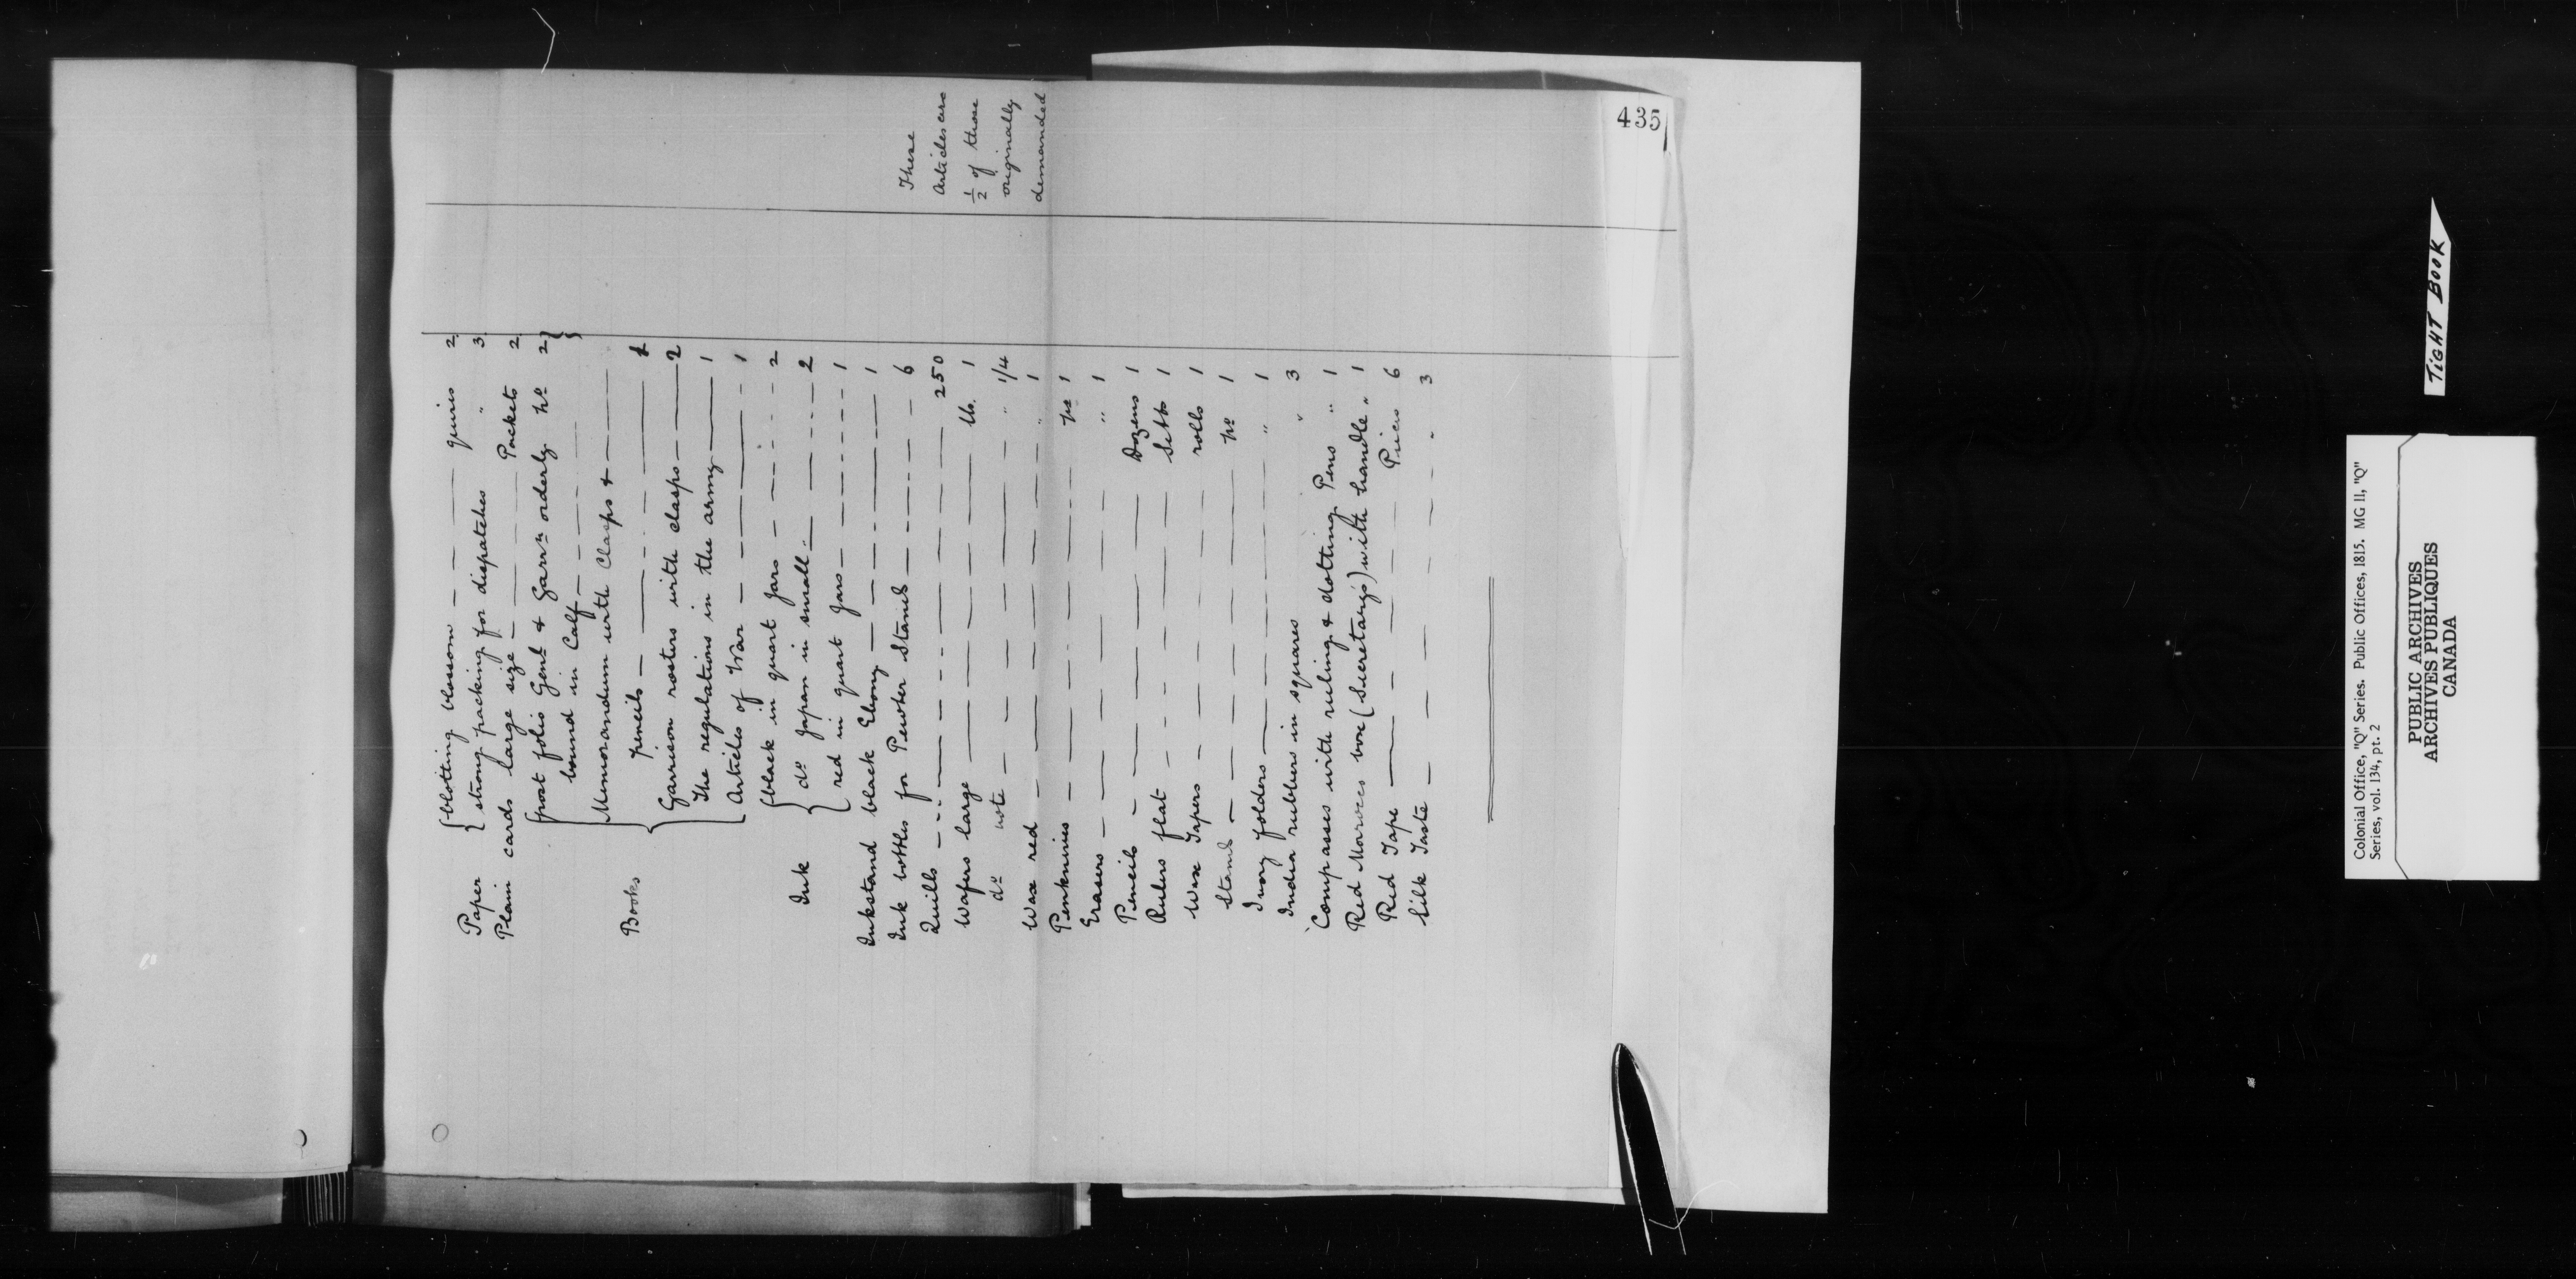 435
Paper { blotting blossom — — — quires 2
{ strong packing for dispatches " 3
Plain cards large size — — — Packets 2
Books { post folio Genl & Garrn orderly No 2 }
bound in Calf — — — — }
Memorandum with Clasps & —
pencils — — — — 1
Garrison rosters with clasps — 2
The regulations in the army — 1
Articles of War — — — — 1
Ink { black in quart Jars — — — 2
do Japan in small — — — 2
red in quart Jars — — — 1
Inkstand black Ebony — — — 1
Ink bottles for Pewter Stands — — — 6
Quills — — — — 250
Wafers large — — — lb. 1
do note — — — " 1/4
Wax red — — — " 1
Penknives — — — No 1
Erasers — — — " 1
Pencils — — — Dozens 1
Rulers flat — — — Setts 1
Wax Tapers — — — rolls 1
Stands — — — No 1
Ivory folders — — — " 1
India rubbers in squares " 3
Compasses with ruling & dotting Pens " 1
Red Morocco box (Secretary's) with handle " 1
Red Tape — — — Pieces 6
Silk Taste — — — " 3
These
Articles are
1/2 of those
originally
demanded
TIGHT BOOK
Colonial Office, "Q" Series. Public Offices, 1815. MG 11, "Q"
Series, vol. 134, pt. 2
PUBLIC ARCHIVES
ARCHIVES PUBLIQUES
CANADA